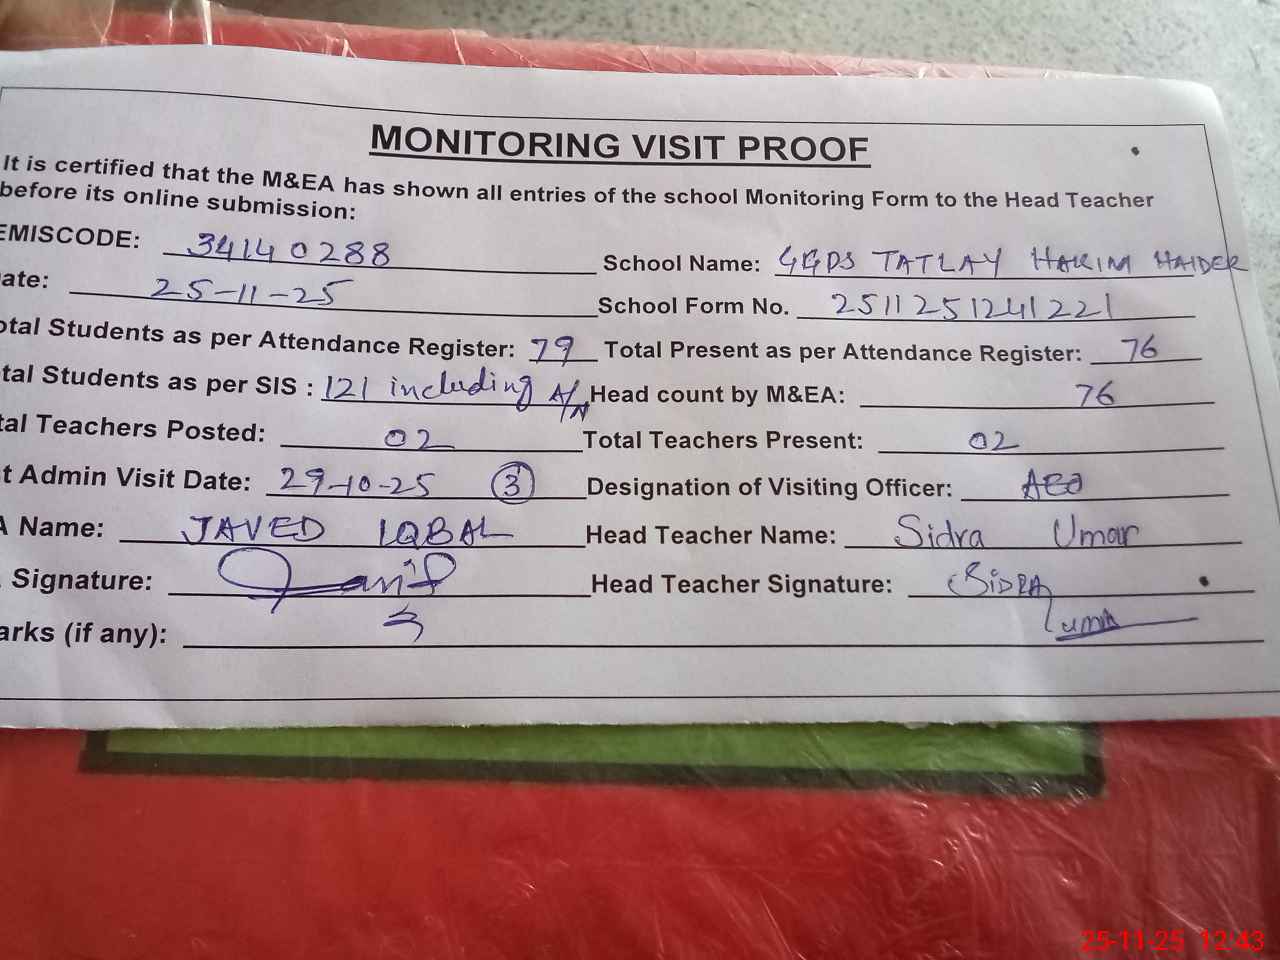 MONITORING VISIT PROOF
It is certified that the M&EA has shown all entries of the school Monitoring Form to the Head Teacher
before its online submission:
EMISCODE: 34140288 School Name: GGPS TATLAY HAKIM HAIDER
ate: 25-11-25 School Form No. 2511251241221
otal Students as per Attendance Register: 79 Total Present as per Attendance Register: 76
tal Students as per SIS : 121 including A/N Head count by M&EA: 76
tal Teachers Posted: 02 Total Teachers Present: 02
t Admin Visit Date: 29-10-25 3 Designation of Visiting Officer: AEO
A Name: JAVED IQBAL Head Teacher Name: Sidra Umar
. Signature: Head Teacher Signature: SIDRA
arks (if any):
25-11-25 12:43